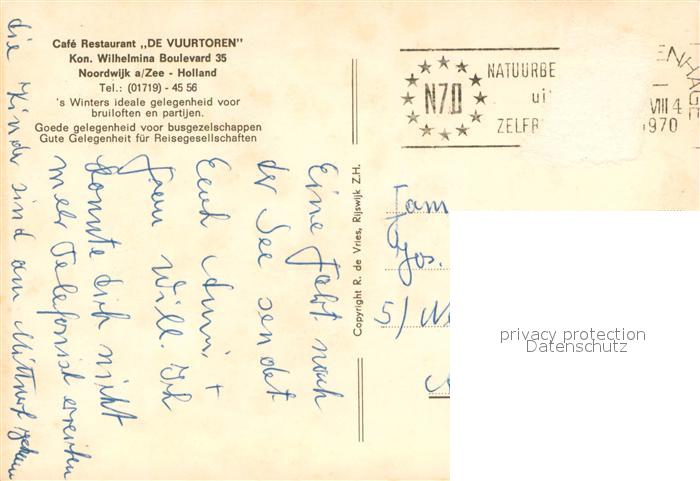 Café Restaurant „DE VUURTOREN"
Kon. Wilhelmina Boulevard 35
Noordwijk a/Zee - Holland
Tel.: (01719) - 45 56
's Winters ideale gelegenheid voor
bruiloften en partijen.
Goede gelegenheid voor busgezelschappen
Gute Gelegenheid für Reisegesellschaften
Eine Fahrt nach
der See sendet
Euch Anni +
Will. Ich
konnte dich nicht
mehr Telefonisch erreichen
die Kinder sind am Mittwoch
Copyright R. de Vries, Rijswijk Z.H.
N70
NATUURBE
ui
ZELFB
ENHAGE
VIII 4
1970
Fam
Jos.
5)
privacy protection
Datenschutz